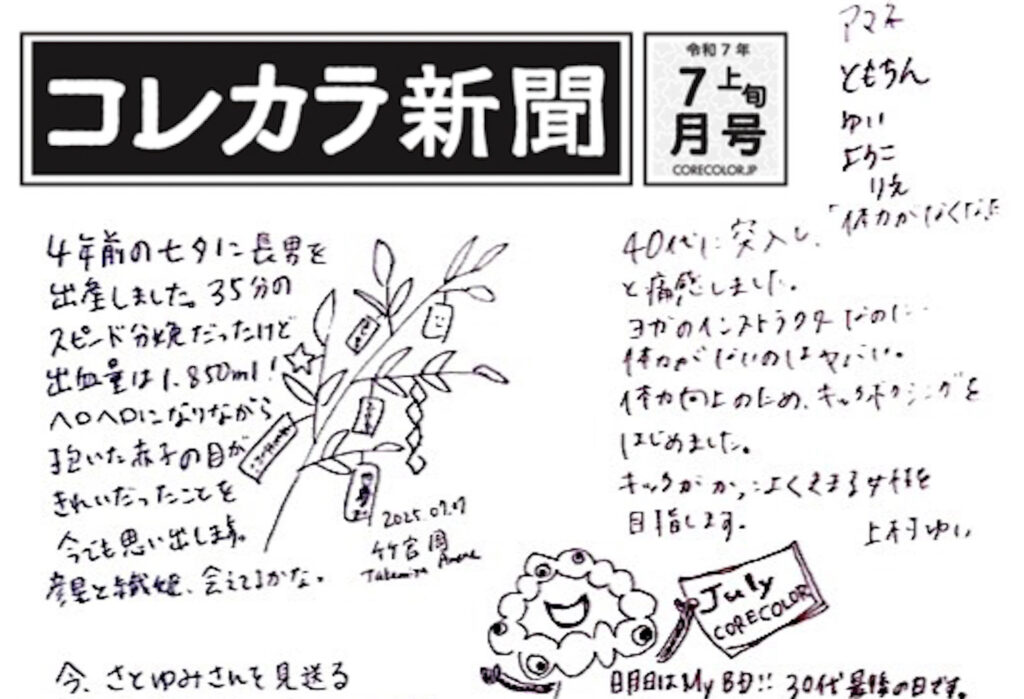 コレカラ新聞
令和7年
7上旬
月号
CORECOLOR.JP
アマネ
ともちん
ゆい
ようこ
りえ
4年前の七夕に長男を
出産しました。35分の
スピード分娩だったけど
出血量は1.850ml!
ヘロヘロになりながら
抱いた赤子の目が
きれいだったことを
今でも思い出します。
彦星と織姫、会えてるかな。
2025.07.07
竹宮周
Takemiya Amane
40代に突入し、「体力がなくなった」
と痛感しました。
ヨガのインストラクターなのに…
体力がないのはヤバい。
体力向上のため、キックボクシングを
はじめました。
キックがかっこよくきまる女性を
目指します。
上村ゆい
July
CORECOLOR
今、さとゆみさんを見送る
明日はMy BD!! 30代最後の日です